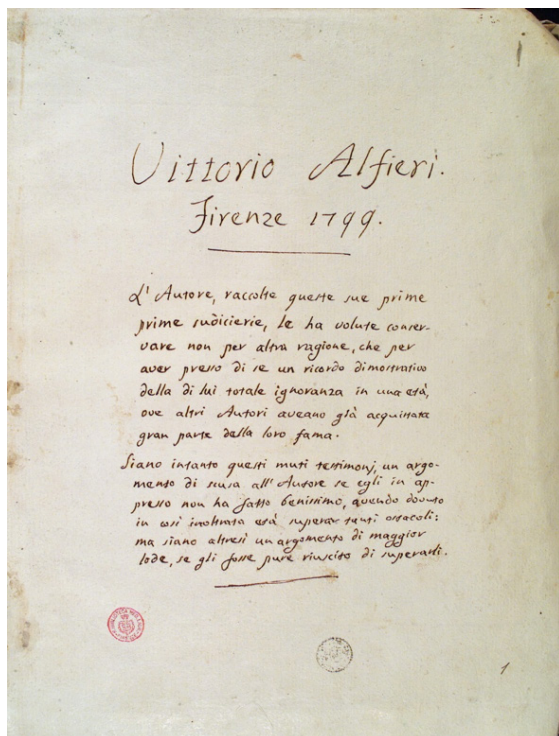 Vittorio Alfieri.
Firenze 1799.
L' Autore, raccolte queste sue prime
prime sudicierie, le ha volute conser-
vare non per altra ragione, che per
aver presso di se un ricordo dimostrativo
della di lui totale ignoranza in una età,
ove altri Autori aveano già acquistata
gran parte della loro fama.
Siano intanto questi muti testimonj, un argo-
mento di scusa all' Autore se egli in ap-
presso non ha fatto benissimo, avendo dovuto
in così inoltrata età superar tanti ostacoli:
ma siano altresì un argomento di maggior
lode, se gli fosse pure riuscito di superarli.
1